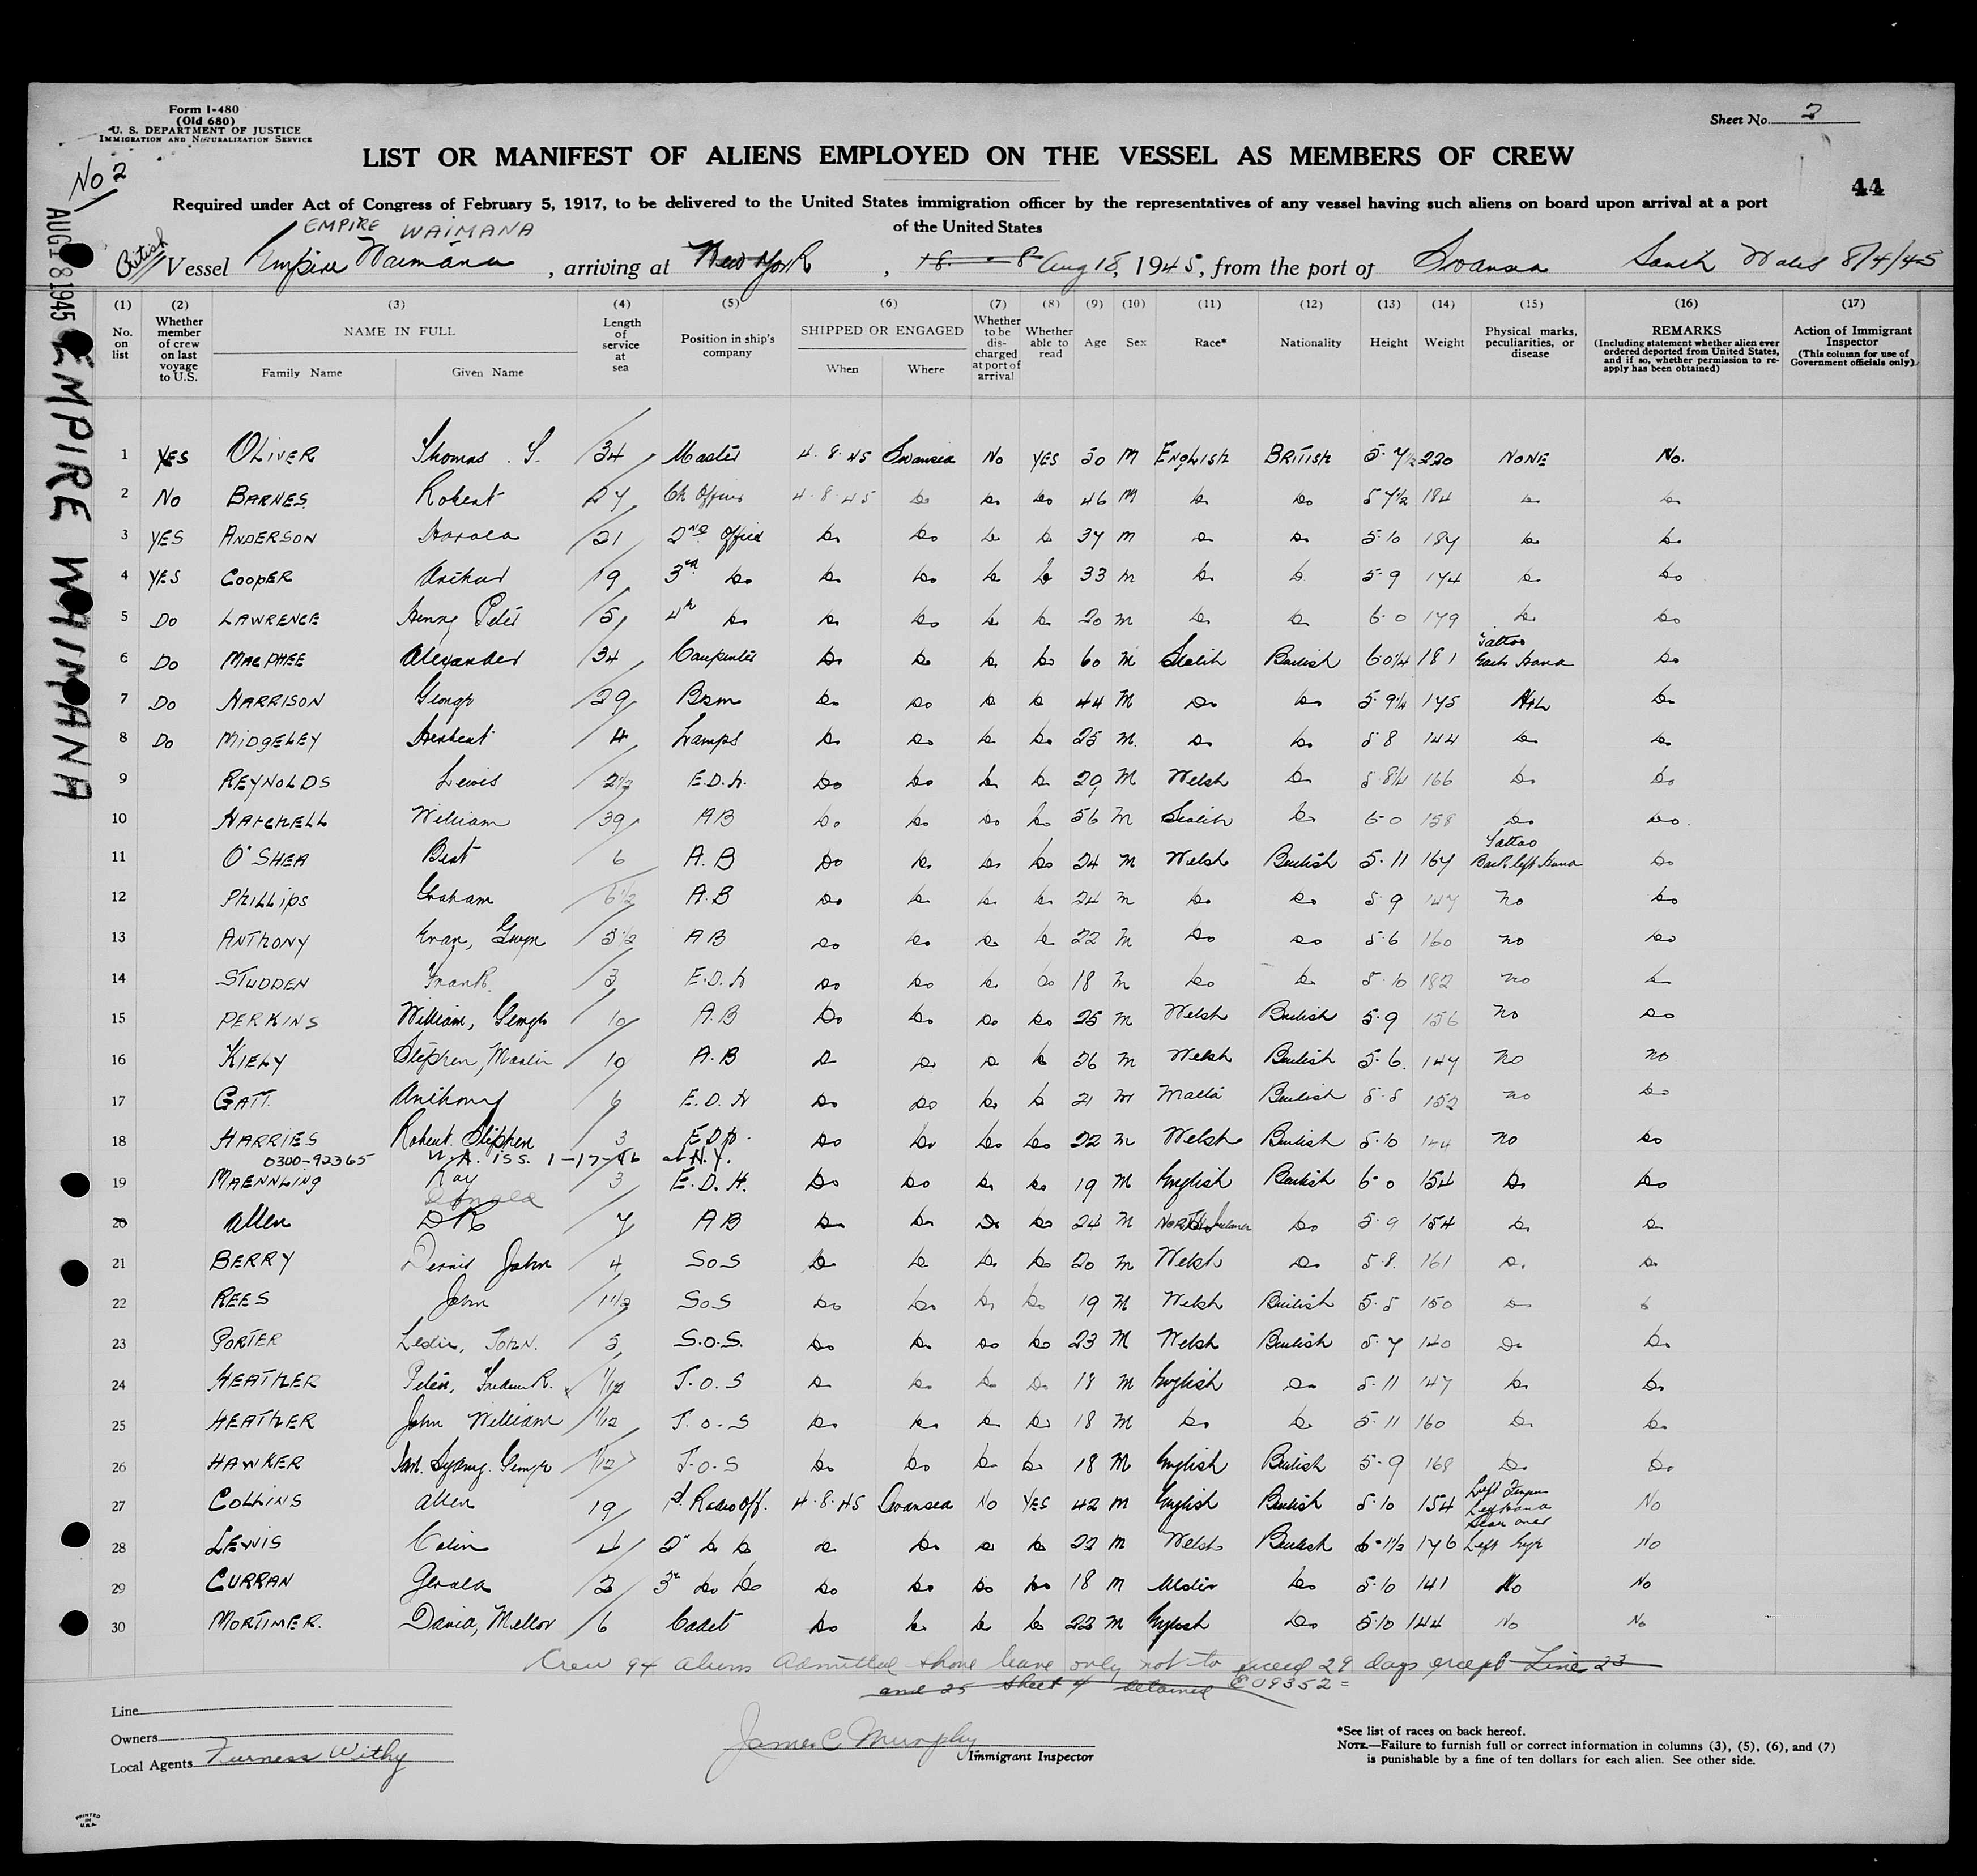 Form I-480
(Old 680)
U. S. DEPARTMENT OF JUSTICE
IMMIGRATION AND NATURALIZATION SERVICE
Sheet No. 2
No 2
LIST OR MANIFEST OF ALIENS EMPLOYED ON THE VESSEL AS MEMBERS OF CREW
44
Required under Act of Congress of February 5, 1917, to be delivered to the United States immigration officer by the representatives of any vessel having such aliens on board upon arrival at a port
of the United States
EMPIRE WAIMANA
British Vessel Empire Waimana, arriving at New York, Aug 18, 1945, from the port of Swansea South Wales 8/4/45
AUG 18 1945
EMPIRE WAIMANA
(1) (2) (3) (4) (5) (6) (7) (8) (9) (10) (11) (12) (13) (14) (15) (16) (17)
No. on list
Whether member of crew on last voyage to U.S.
NAME IN FULL
Family Name
Given Name
Length of service at sea
Position in ship's company
SHIPPED OR ENGAGED
When
Where
Whether to be discharged at port of arrival
Whether able to read
Age
Sex
Race*
Nationality
Height
Weight
Physical marks, peculiarities, or disease
REMARKS
(Including statement whether alien ever ordered deported from United States, and if so, whether permission to reapply has been obtained)
Action of Immigrant Inspector
(This column for use of Government officials only)
1 YES OLIVER Thomas . S. 34 Master 4.8.45 Swansea No YES 50 M ENGLISH BRITISH 5.7½ 220 NONE No.
2 No BARNES Robert 27 Ch Officer 4.8.45 Do Do Do 46 M Do Do 5 7½ 184 Do Do
3 YES ANDERSON Harold 21 2ND Officer Do Do Do Do 37 M Do Do 5.10 187 Do Do
4 YES COOPER Arthur 19 3rd Do Do Do Do Do 33 M Do Do 5.9 174 Do Do
5 Do LAWRENCE Henry Peter 5 4th Do Do Do Do Do 20 M Do Do 6.0 179 Do Do
6 Do MACPHEE Alexander 34 Carpenter Do Do Do Do 60 M Scotch British 6.0¼ 181 Tattoo Each Hand Do
7 Do HARRISON George 29 Bosm Do Do Do Do 44 M Do Do 5.9¼ 175 Do
8 Do MIDGELEY Herbert 4 Lamps Do Do Do Do 25 M. Do Do 5 8 144 Do Do
9 REYNOLDS Lewis 2½ E.D.H. Do Do Do Do 29 M Welsh Do 5.8¼ 166 Do Do
10 William 39 AB Do Do Do Do 56 M Scotch Do 6.0 158 Do Do.
11 O'SHEA Bert 6 A.B Do Do Do Do 24 M Welsh British 5.11 167 Tattoo Back left Hand Do
12 PHILLIPS Graham 6½ A.B Do Do Do Do 24 M Do Do 5 9 147 No Do
13 ANTHONY Evan, Gwyn 3½ AB Do Do Do Do 22 M Do Do 5.6 160 No Do
14 STUDDEN Frank 3 E.D.H Do Do Do Do 18 M Do Do 5.10 182 No Do
15 PERKINS William, George 10 A.B Do Do Do Do 25 M Welsh British 5.9 156 No Do
16 KIELY Stephen, Martin 10 A.B Do Do Do Do 26 M Welsh British 5.6. 147 No No
17 GATT. Anthony 6 E.D.H Do Do Do Do 21 M Malta British 5.5 152 No Do
18 HARRIES Robert. Stephen 3 EDH. Do Do Do Do 22 M Welsh British 5.10 144 No Do
0300-92365 N.A. iss. 1-17-46 at N.Y.
19 MAENNLING Ray 3 E.D.H. Do Do Do Do 19 M English British 6.0 154 Do Do
Donald
20 Allen DR 7 AB Do Do Do Do 24 M North Ireland Do 5.9 154 Do Do
21 BERRY Denis John 4 SOS Do Do Do Do 20 M Welsh Do 5.8. 161 Do Do
22 REES John 1½ SOS Do Do Do Do 19 M Welsh British 5.5 150 Do Do
23 PORTER Leslie, JOHN. 3 S.O.S. Do Do Do Do 23 M Welsh British 5.7 140 Do Do
24 HEATHER Peter, Frederick. 1/12 J.O.S Do Do Do Do 18 M English Do 5.11 147 Do Do
25 HEATHER John William 1/12 J.O.S Do Do Do Do 18 M Do Do 5.11 160 Do Do
26 HAWKER George 1/12 J.O.S Do Do Do Do 18 M English British 5.9 168 Do Do
27 COLLINS Allen 19 1st. Radio Off. 4.8.45 Swansea No YES 42 M English British 5.10 154 Left Finger Left Hand No
28 LEWIS Colin 4 2nd Do Do Do Do Do Do 22 M Welsh British 6.1½ 176 Scar over Left Eye No
29 CURRAN Gerald 2 3rd Do Do Do Do Do Do 18 M Ulster Do 5.10 141 No No
30 MORTIMER. David, Mellor 6 Cadet Do Do Do Do 22 M English Do 5.10 144 No No
Crew 94 aliens admitted shore leave only not to exceed 29 days except Line 23
and 25 sheet 4 detained
Line
Owners
Local Agents Furness Withy
James C Murphy
Immigrant Inspector
*See list of races on back hereof.
NOTE.—Failure to furnish full or correct information in columns (3), (5), (6), and (7)
is punishable by a fine of ten dollars for each alien. See other side.
PRINTED
IN
U.S.A.